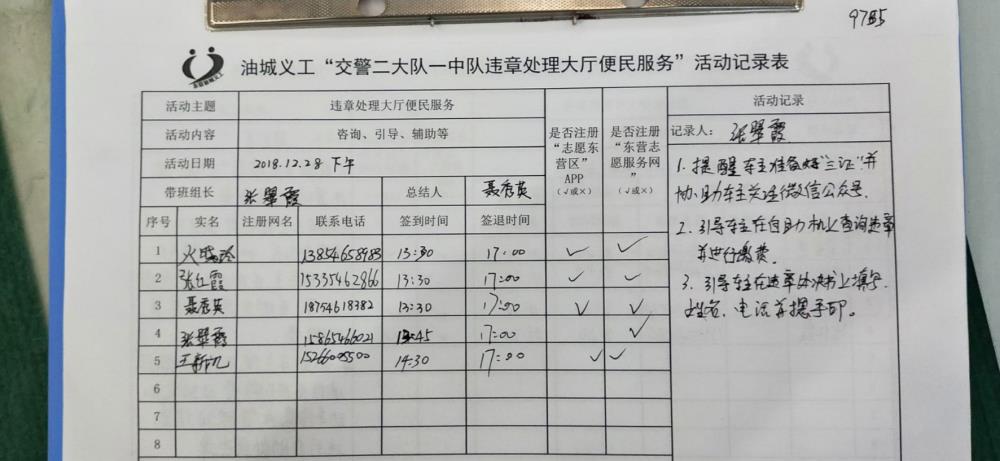 9785
油城义工“交警二大队一中队违章处理大厅便民服务”活动记录表
活动主题 违章处理大厅便民服务
活动内容 咨询、引导、辅助等
活动日期 2018.12.28 下午
带班组长 张翠霞 总结人 聂秀英
是否注册“志愿东营区”APP（√或×）
是否注册“东营志愿服务网”（√或×）
序号 实名 注册网名 联系电话 签到时间 签退时间
1 13854658983 13:30 17:00 √ √
2 张红霞 15335462866 13:30 17:00 √ √
3 聂秀英 18754618382 13:30 17:00 √ √
4 张翠霞 15865466021 13:45 17:00 √
5 15266005500 14:30 17:00 √ √
6
7
8
活动记录
记录人：张翠霞
1. 提醒车主准备好“三证”并
协助车主关注微信公众号.
2. 引导车主在自助机上查询违章
并进行缴费.
3. 引导车主在违章处决书上填写
姓名、电话并摁手印。